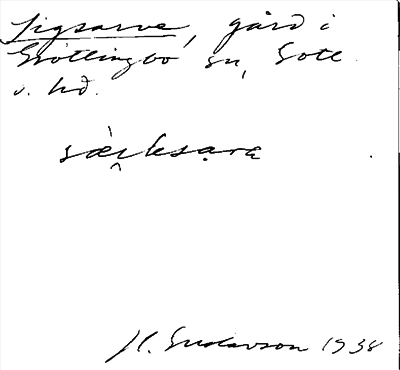 Sigsarve, gård i
Gröttingbo sn, Gotl.
s. hd.
sæiksarα
H. Gustavson 1938